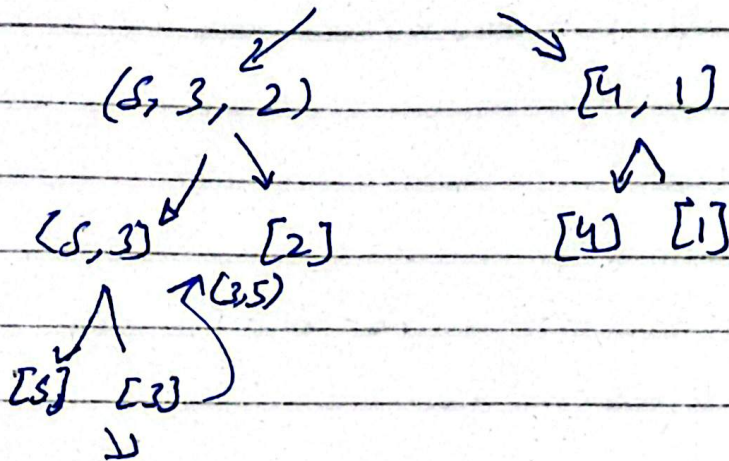 (5, 3, 2) [4, 1]
(5, 3] [2] [4] [1]
(3,5)
[5] [3]